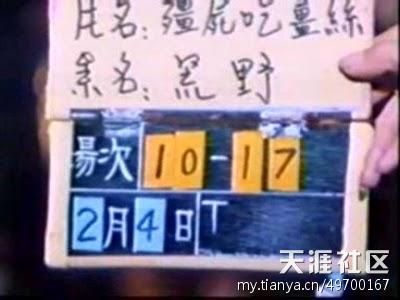 片名:殭屁吃薑絲
系名:黑野
場次 10-17
2月4日 T
天涯社区
my.tianya.cn/49700167